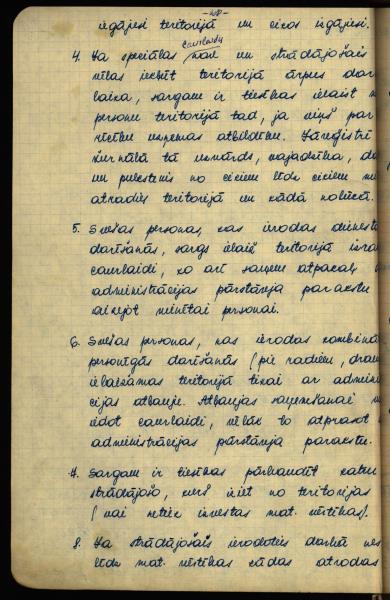 - 48 -
iegājesi teritorijā un cikos izgājesi.
caurlaides
4. Ja speciālas nav un strādājošais
vēlas iekļūt teritorijā ārpus dar
laika, sargam ir tiesības ielaist
personu teritorijā tad, ja viņš par
rīcību uzņemas atbildību. Jāreģistrē
žurnālā tā uzvārds, vajadzība, da
un pulkstenis no cikiem līdz cikiem
atradies teritorijā un kādā nolūkā.
5. Svešas personas, kas ierodas dienesta
darīšanās, sargs ielaiž teritorijā izra
caurlaidi, ko arī saņem atpakaļ
administrācijas pārstāvja parakstu
aizejot minētai personai.
6. Svešas personas, kas ierodas kombinā
personīgās darīšanās (pie radiem, drau
ielaižamas teritorijā tikai ar admini
cijas atļauju. Atļaujas saņemšanai
izdot caurlaidi, vēlāk to atprasot
administrācijas pārstāvja parakstu.
7. Sargam ir tiesības pārbaudīt katru
strādājošo, kurš iziet no teritorijas
(vai netiek iznestas mat. vērtības).
8. Ja strādājošais ierodoties darbā nes
līdz mat. vērtības kādas atrodas